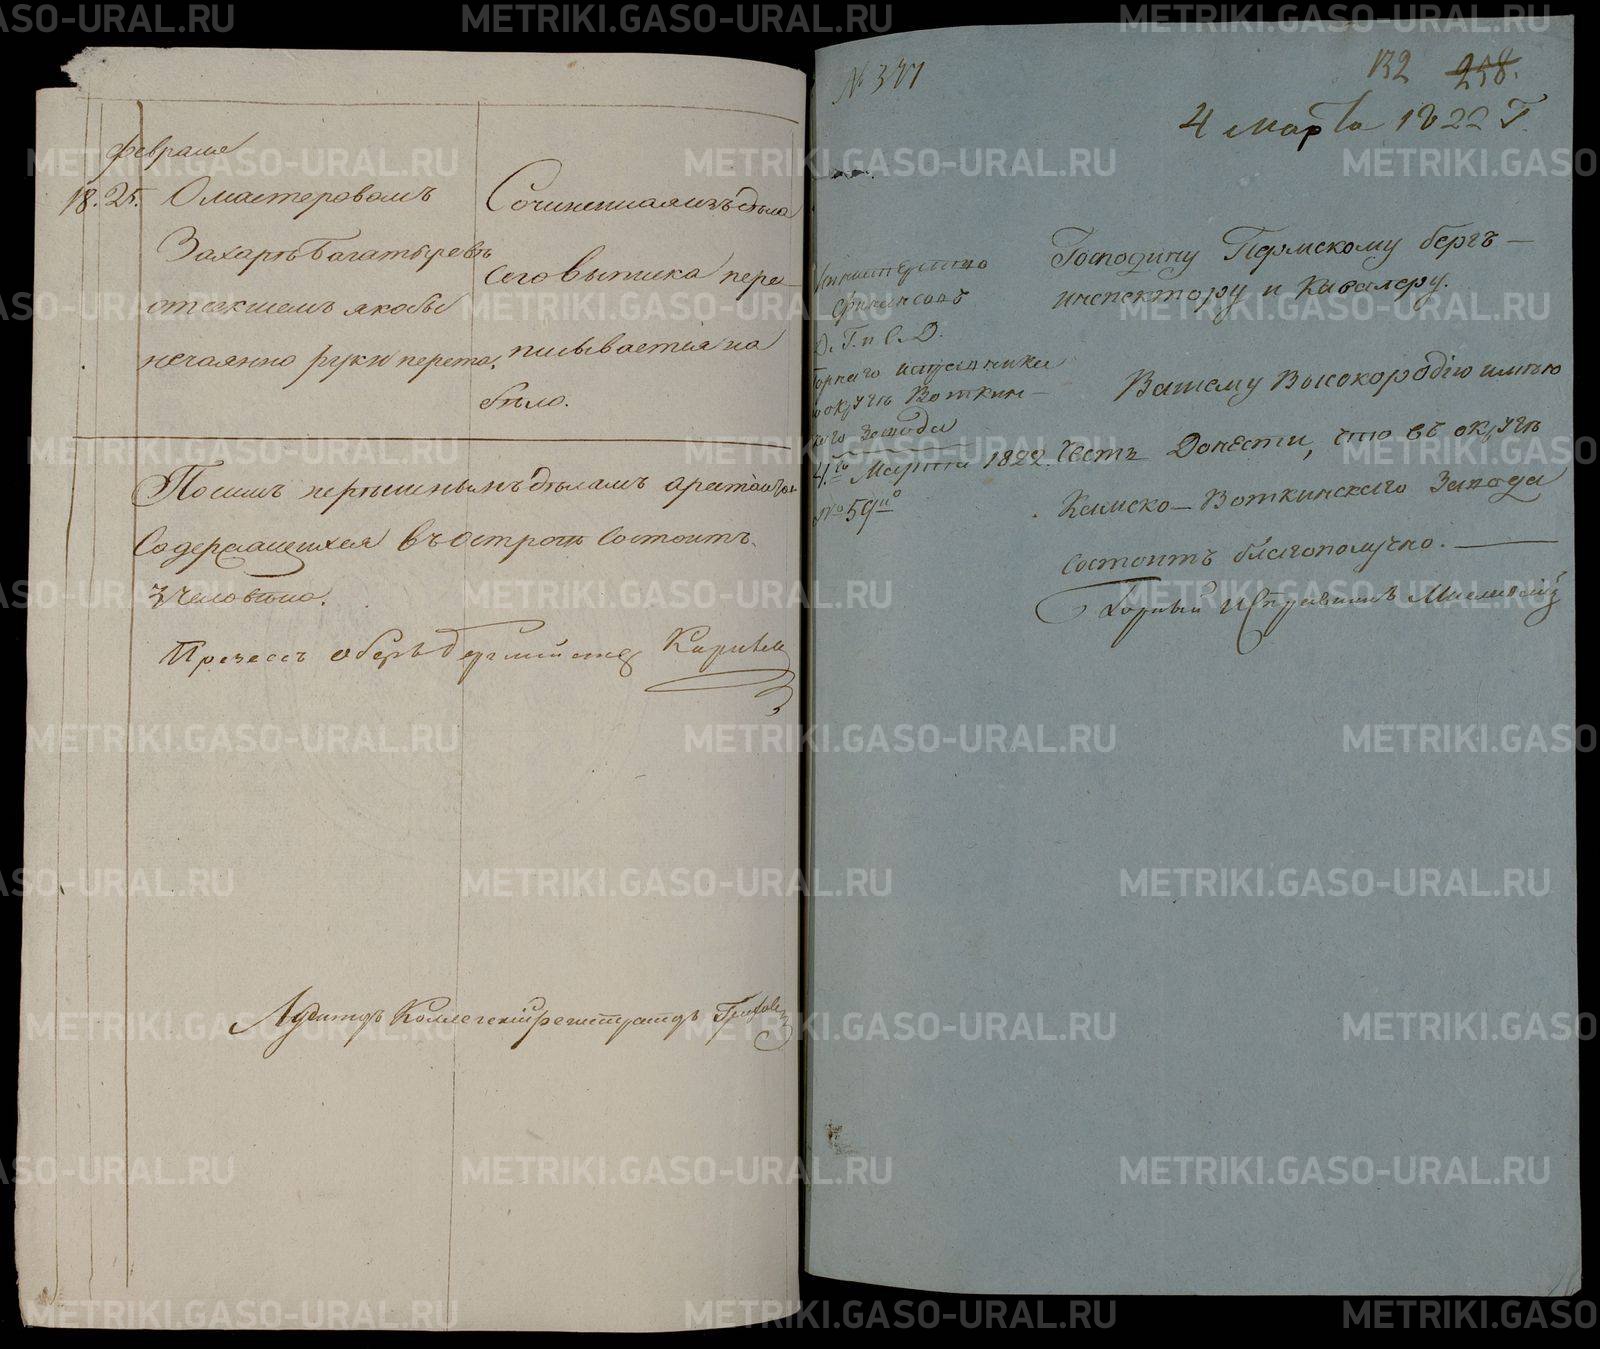 февраля
18. 25. О мастеровомъ
Захарѣ Богатыревѣ
отсекшемъ якобы
нечаянно руки перста.
Сочиненная изъ дѣла
сего выписка пере-
писывается на
бѣло.
По симъ нерѣшенымъ дѣламъ арестантовъ
Содержащихся въ острогѣ состоитъ
3 человѣка.
Презесъ оберъ
Аудиторъ Коллегскій регистраторъ
№ 377
132 258.
4 марта 1822 Г.
Министерство
финансовъ
Д. Г. и С. Д.
Горнаго исправника
в округѣ Воткин-
ского Завода
4го Марта 1822.
№ 59й
Господину Пермскому бергъ-
инспектору и Кавалеру.
Вашему Высокородію имѣю
Честь Донести, что въ округѣ
Камско-Воткинскаго Завода
состоитъ благополучно.
Горный Исправникъ
METRIKI.GASO-URAL.RU